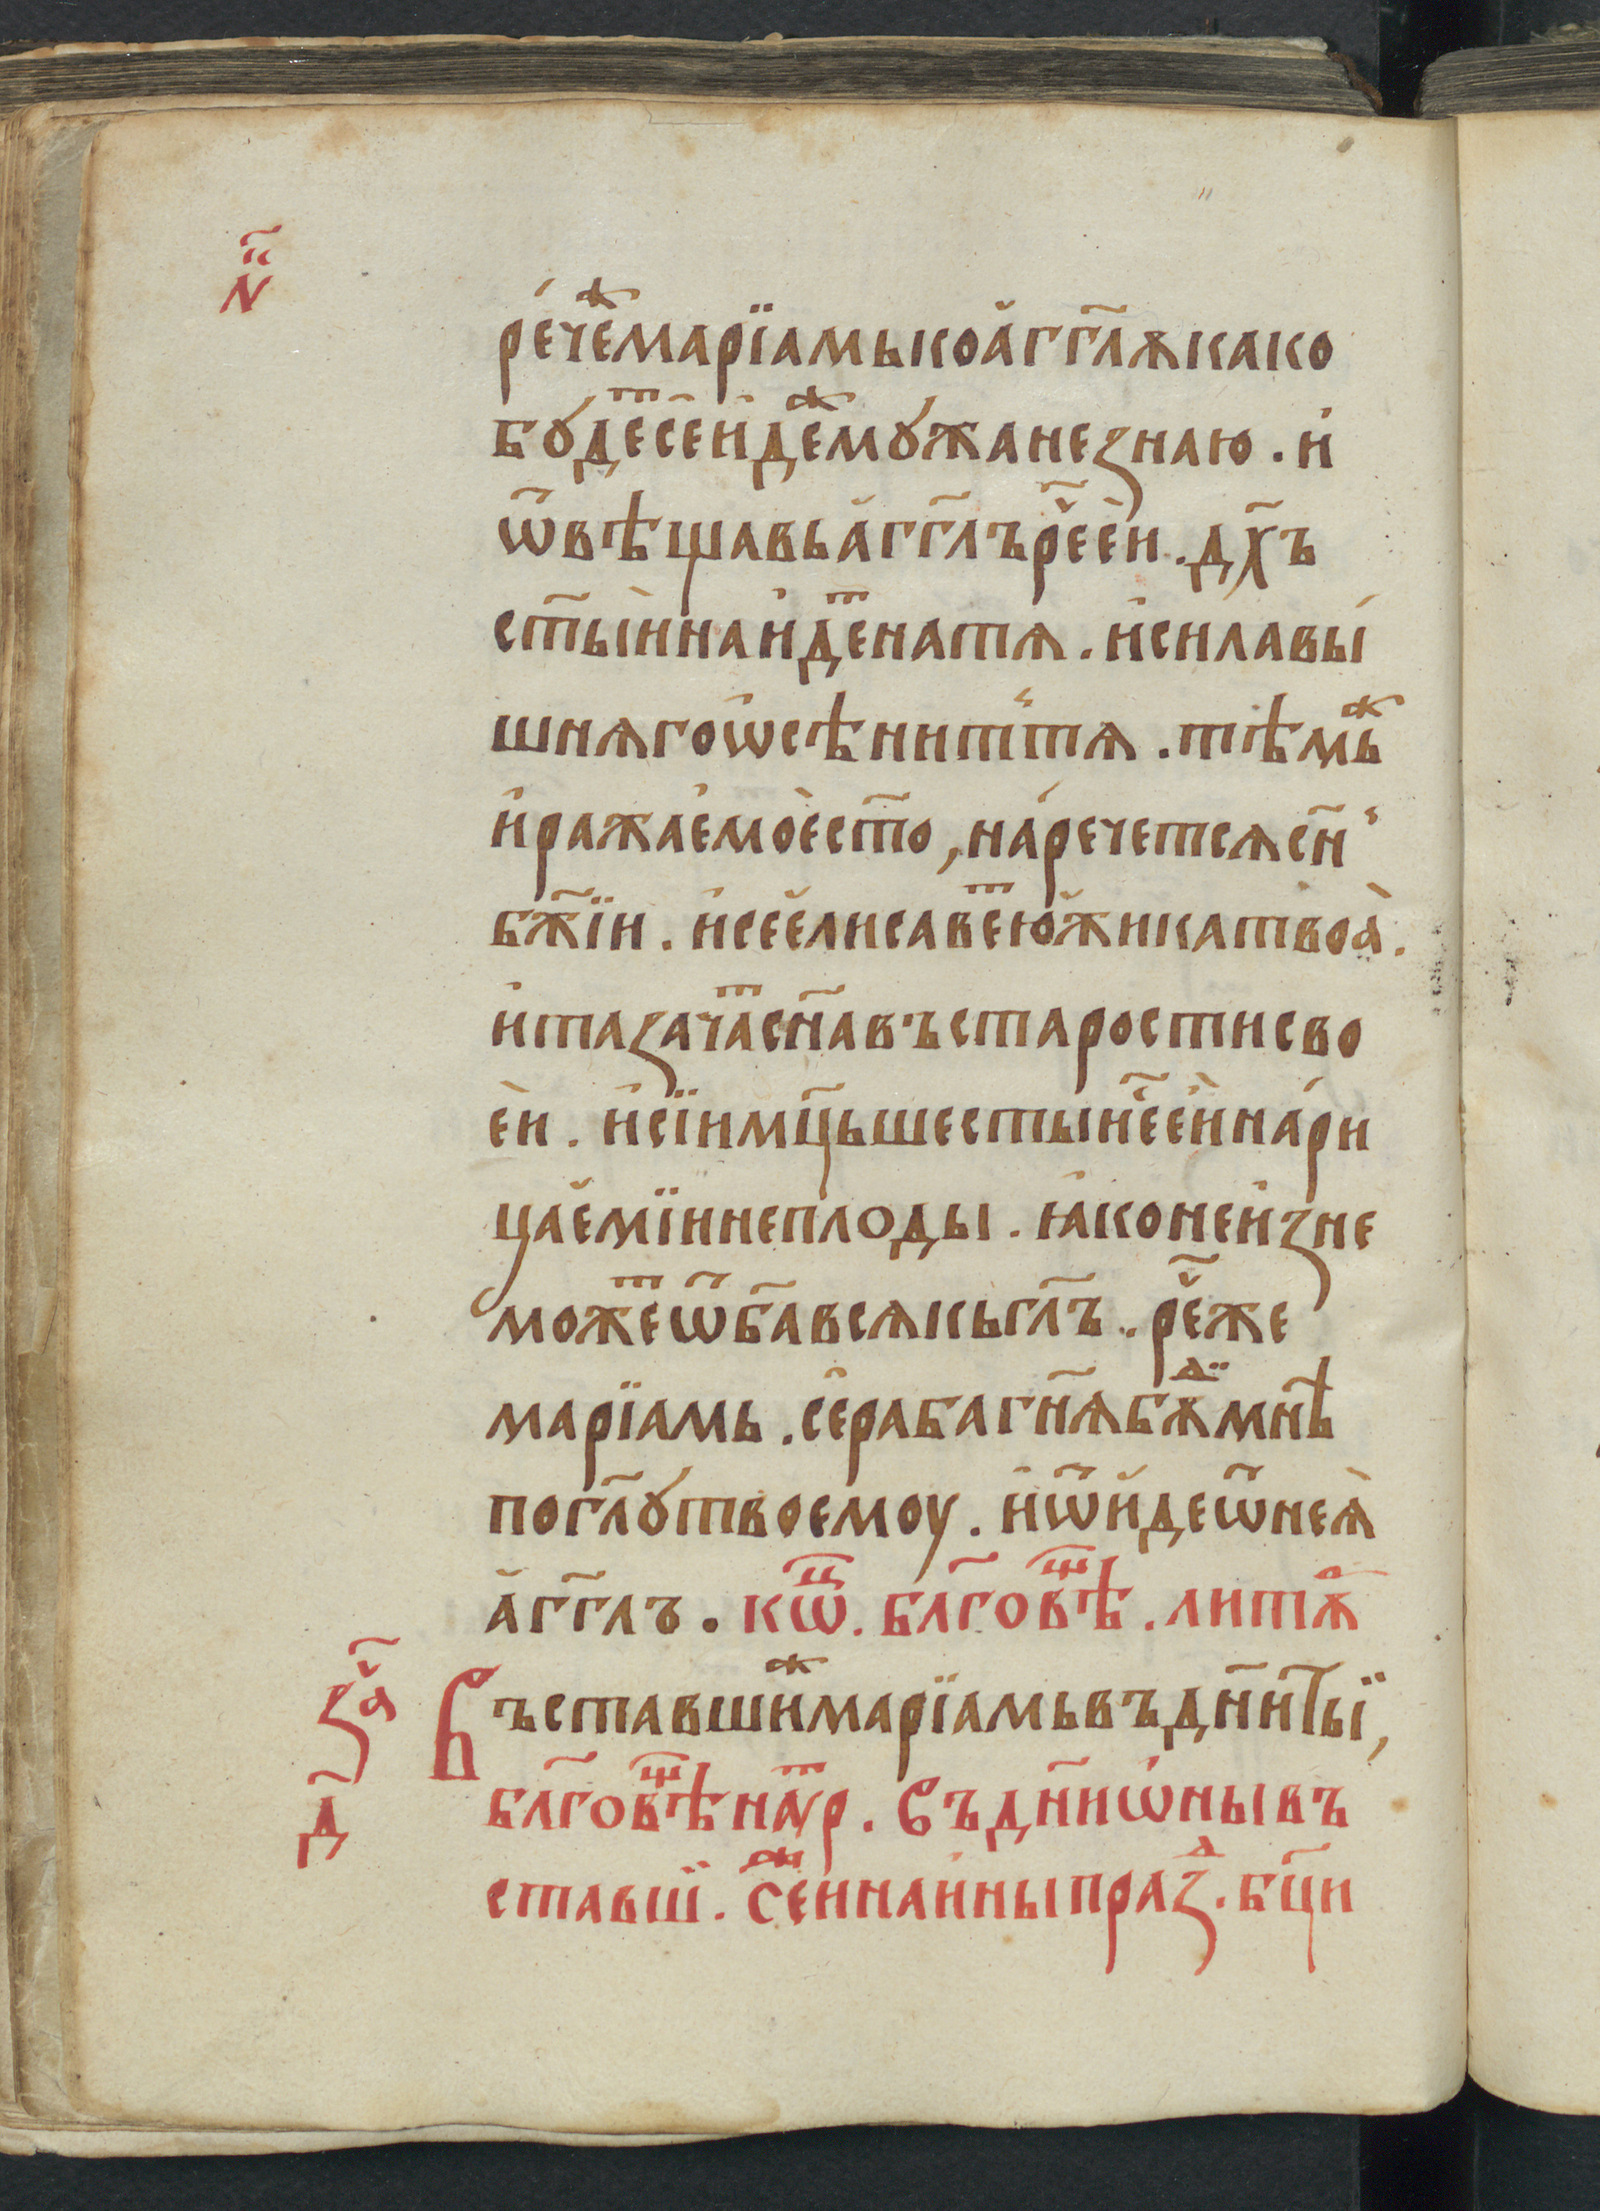 н҃
ре́чеⷤ марїамь ко а҆гг҃лѧ како
бꙋ́деⷮ се и҆деⷤ мꙋжа не знаю . и҆
ѿвѣщавь а҆гг҃лъ рⷱ҇е е҆и . дх҃ъ
ст҃ыи наи҆деⷮ на тѧ . и҆ сила вы
шнѧго ѡ҆сѣнит тѧ . тѣмьⷤ
и҆ ражае҆мое҆ ст҃о , на́речетсѧ сн҃
бж҃їи . и҆ се е҆лисавеⷮ ю҆жика твоѧ̀ .
и҆ та зачаⷮ сн҃а въ старости сво
е҆и . и҆ сїи мц҃ь шестыи е҆ⷭ҇ е҆и на́ри
цае҆мїи неплоды . ꙗ҆ко не и҆зне
можеⷮ ѿ б҃а всѧкь гл҃ъ . рⷱ҇е же
марїамь . се раба гн҃ѧ бѫⷣ мнѣ
по гл҃ꙋ твоемоу . и҆ ѿи҆де ѿ неѧ̀
а҆гг҃лъ . кѿⷰ . бл҃говѣⷳ . литⷬ҇ѧ
зⷱ҇а Въставшиⷤ марїамь въ дн҃и ты̑ ,
д҃ бл҃говѣⷳ наꙋⷮр . Въ дн҃и ѡ҆ны въ
ставши . Сеⷤ и на и҆ны праⷥ . бц҃и